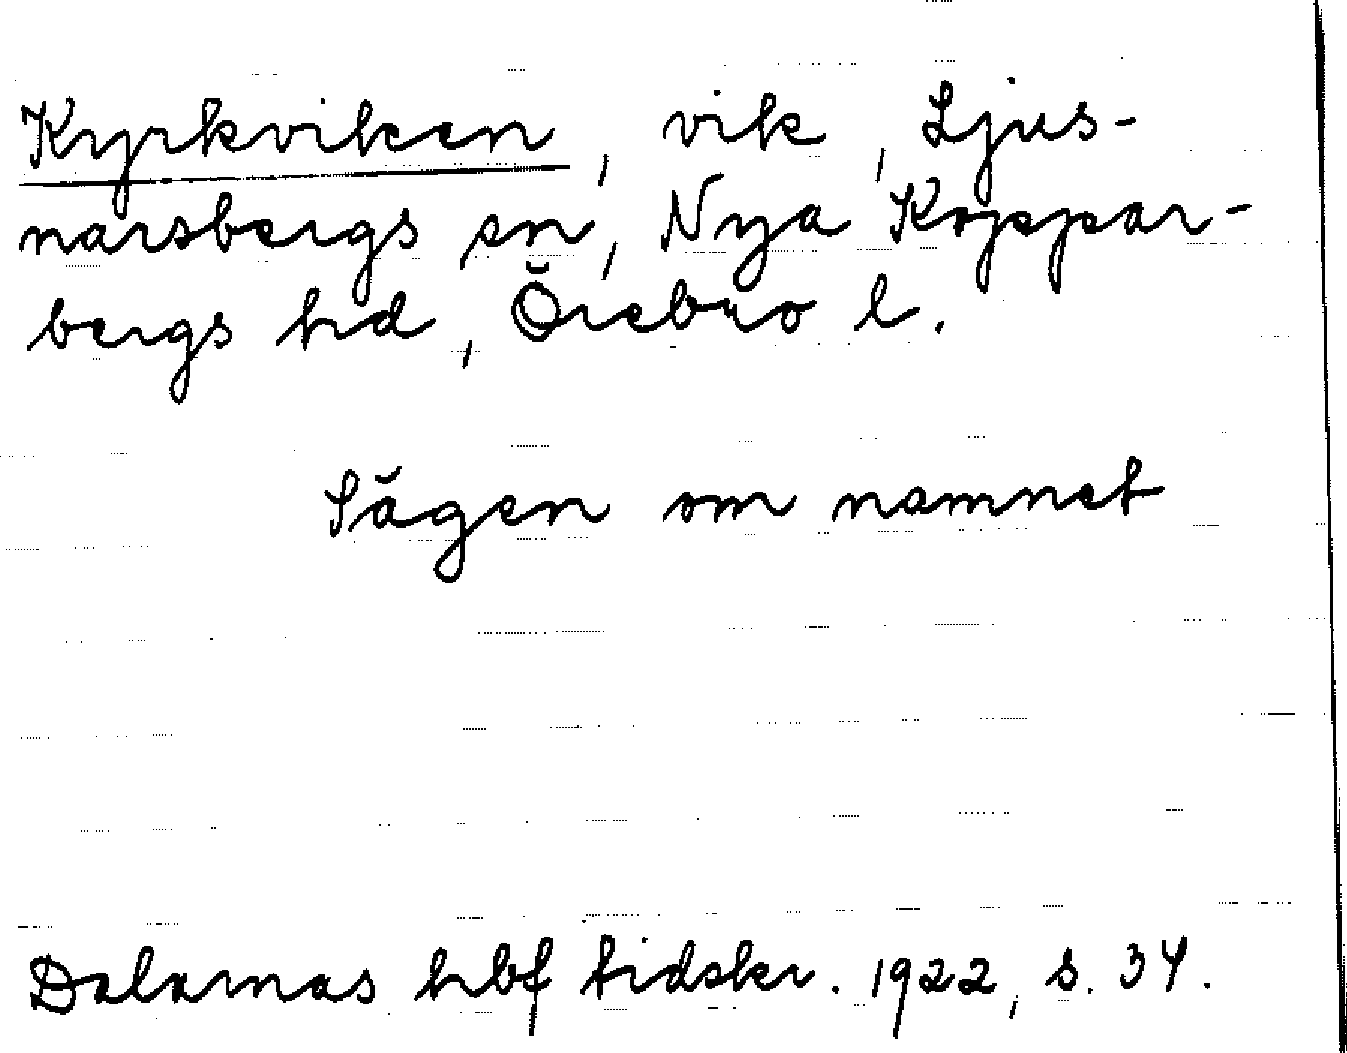 Kyrkviken, vik, Ljus-
narsbergs sn, Nya Koppar-
bergs hd, Örebro l.
Sägen om namnet
Dalarnas hbf tidskr. 1922, s. 34.